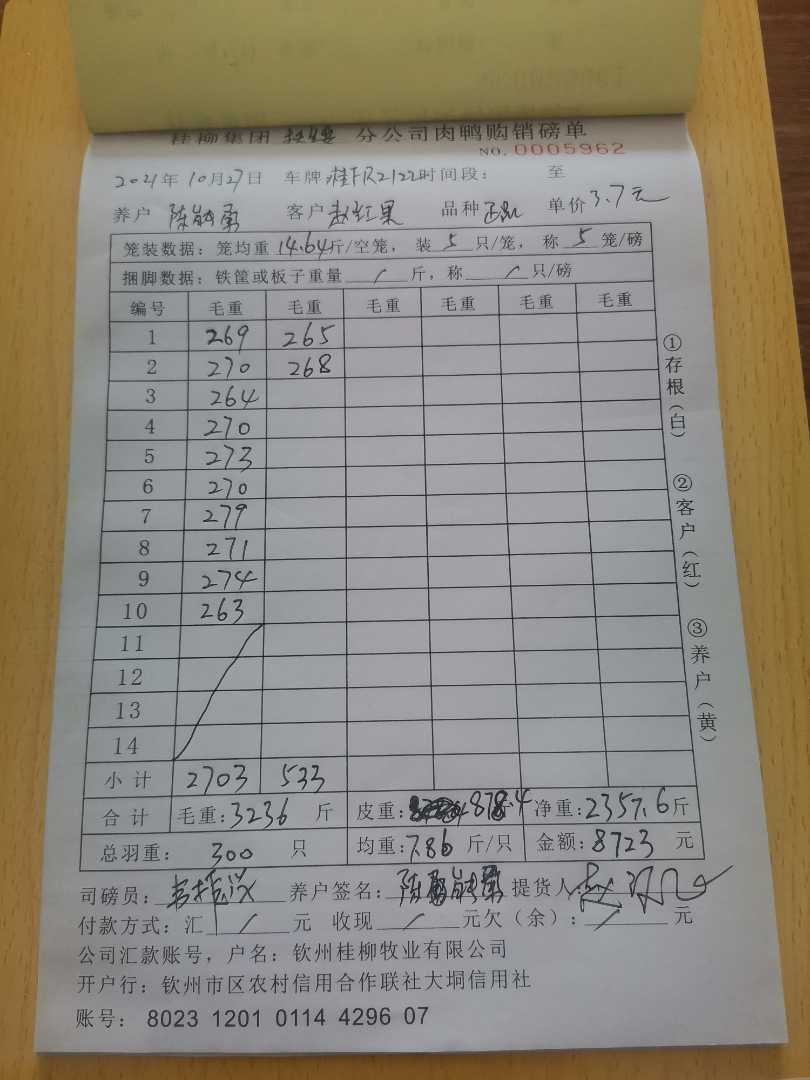 桂柳集团 分公司肉鸭购销磅单
NO. 0005962
2021年10月27日 车牌:桂FR2122时间段: 至
养户 陈能勇 客户 赵红果 品种 单价 3.7元
笼装数据: 笼均重 14.64斤/空笼, 装 5 只/笼, 称 5 笼/磅
捆脚数据: 铁筐或板子重量 / 斤, 称 / 只/磅
编号 毛重 毛重 毛重 毛重 毛重 毛重
1 269 265
2 270 268
3 264
4 270
5 273
6 270
7 279
8 271
9 274
10 263
11
12
13
14
小计 2703 533
合计 毛重:3236 斤 皮重: 878.4 净重:2357.6斤
总羽重: 300 只 均重:7.86 斤/只 金额:8723 元
司磅员: 养户签名: 陈能勇 提货人:
付款方式: 汇 / 元 收现 / 元欠(余): / 元
公司汇款账号, 户名: 钦州桂柳牧业有限公司
开户行: 钦州市区农村信用合作联社大垌信用社
账号: 8023 1201 0114 4296 07
①存根(白)
②客户(红)
③养户(黄)